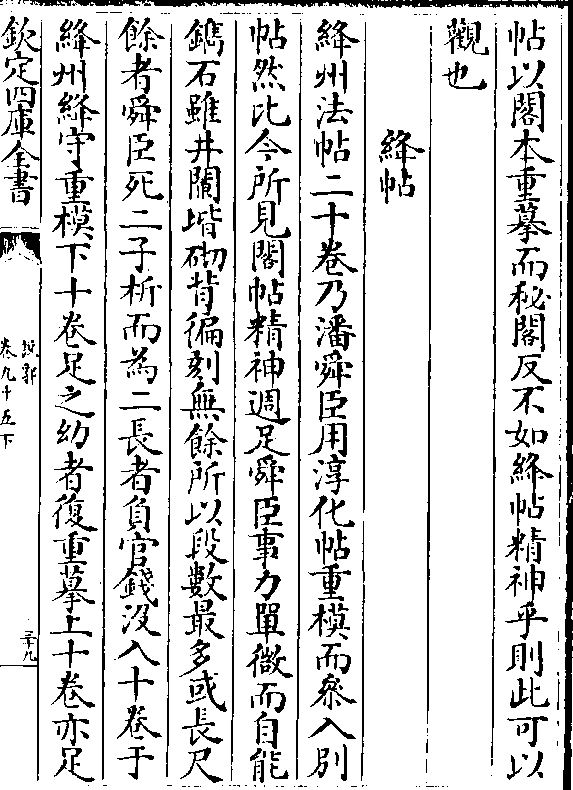 帖以閣本重摹而秘閣反不如絳帖精神乎則此可以
觀也
絳帖
絳州法帖二十卷乃潘舜臣用淳化帖重模而叅入别
帖然比今所見閣帖精神過之舜臣事力單微而自能
鐫石雖井闌堦砌背徧刻無餘所以段數最多或長尺
餘者舜臣死二子析而為二長者負官錢沒入十卷于
絳州絳守重模下十卷足之幼者復重摹上十卷亦足
欽定四庫全書
說郛
卷九十五下
三十九